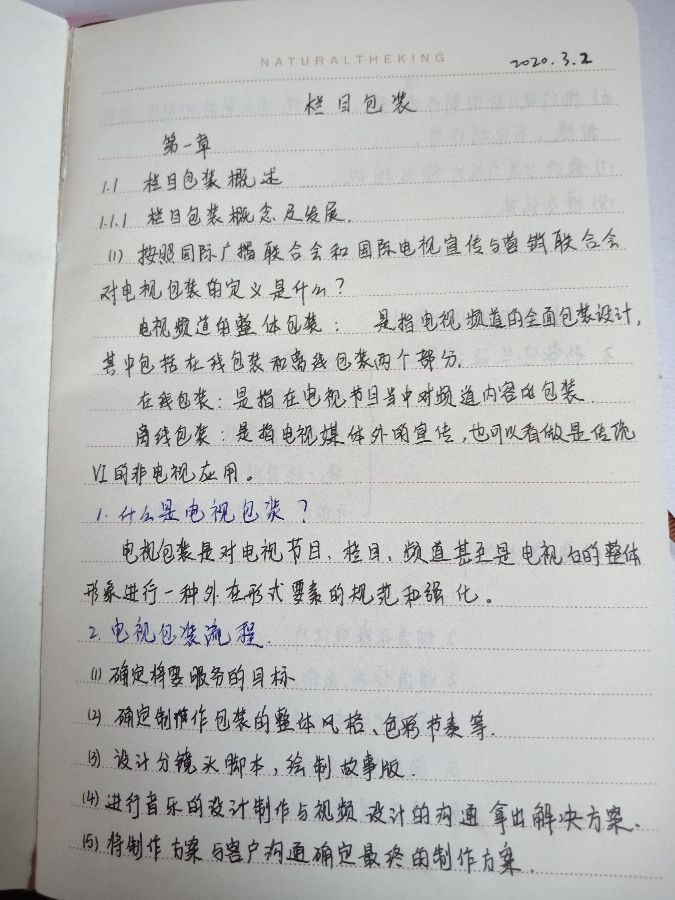 NATURALTHEKING
2020.3.2
栏目包装
第一章
1.1 栏目包装概述
1.1.1 栏目包装概念及发展.
(1) 按照国际广播联合会和国际电视宣传与营销联合会
对电视包装的定义是什么?
电视频道的整体包装: 是指电视频道的全面包装设计,
其中包括在线包装和离线包装两个部分.
在线包装:是指在电视节目当中对频道内容的包装.
离线包装:是指电视媒体外的宣传,也可以看做是传统
VI的非电视应用。
1.什么是电视包装?
电视包装是对电视节目、栏目、频道甚至是电视台的整体
形象进行一种外在形式要素的规范和强化。
2.电视包装流程.
(1) 确定将要服务的目标
(2) 确定制作包装的整体风格、色彩节奏等.
(3) 设计分镜头脚本,绘制故事版.
(4) 进行音乐的设计制作与视频设计的沟通 拿出解决方案.
(5) 将制作方案与客户沟通确定最终的制作方案.